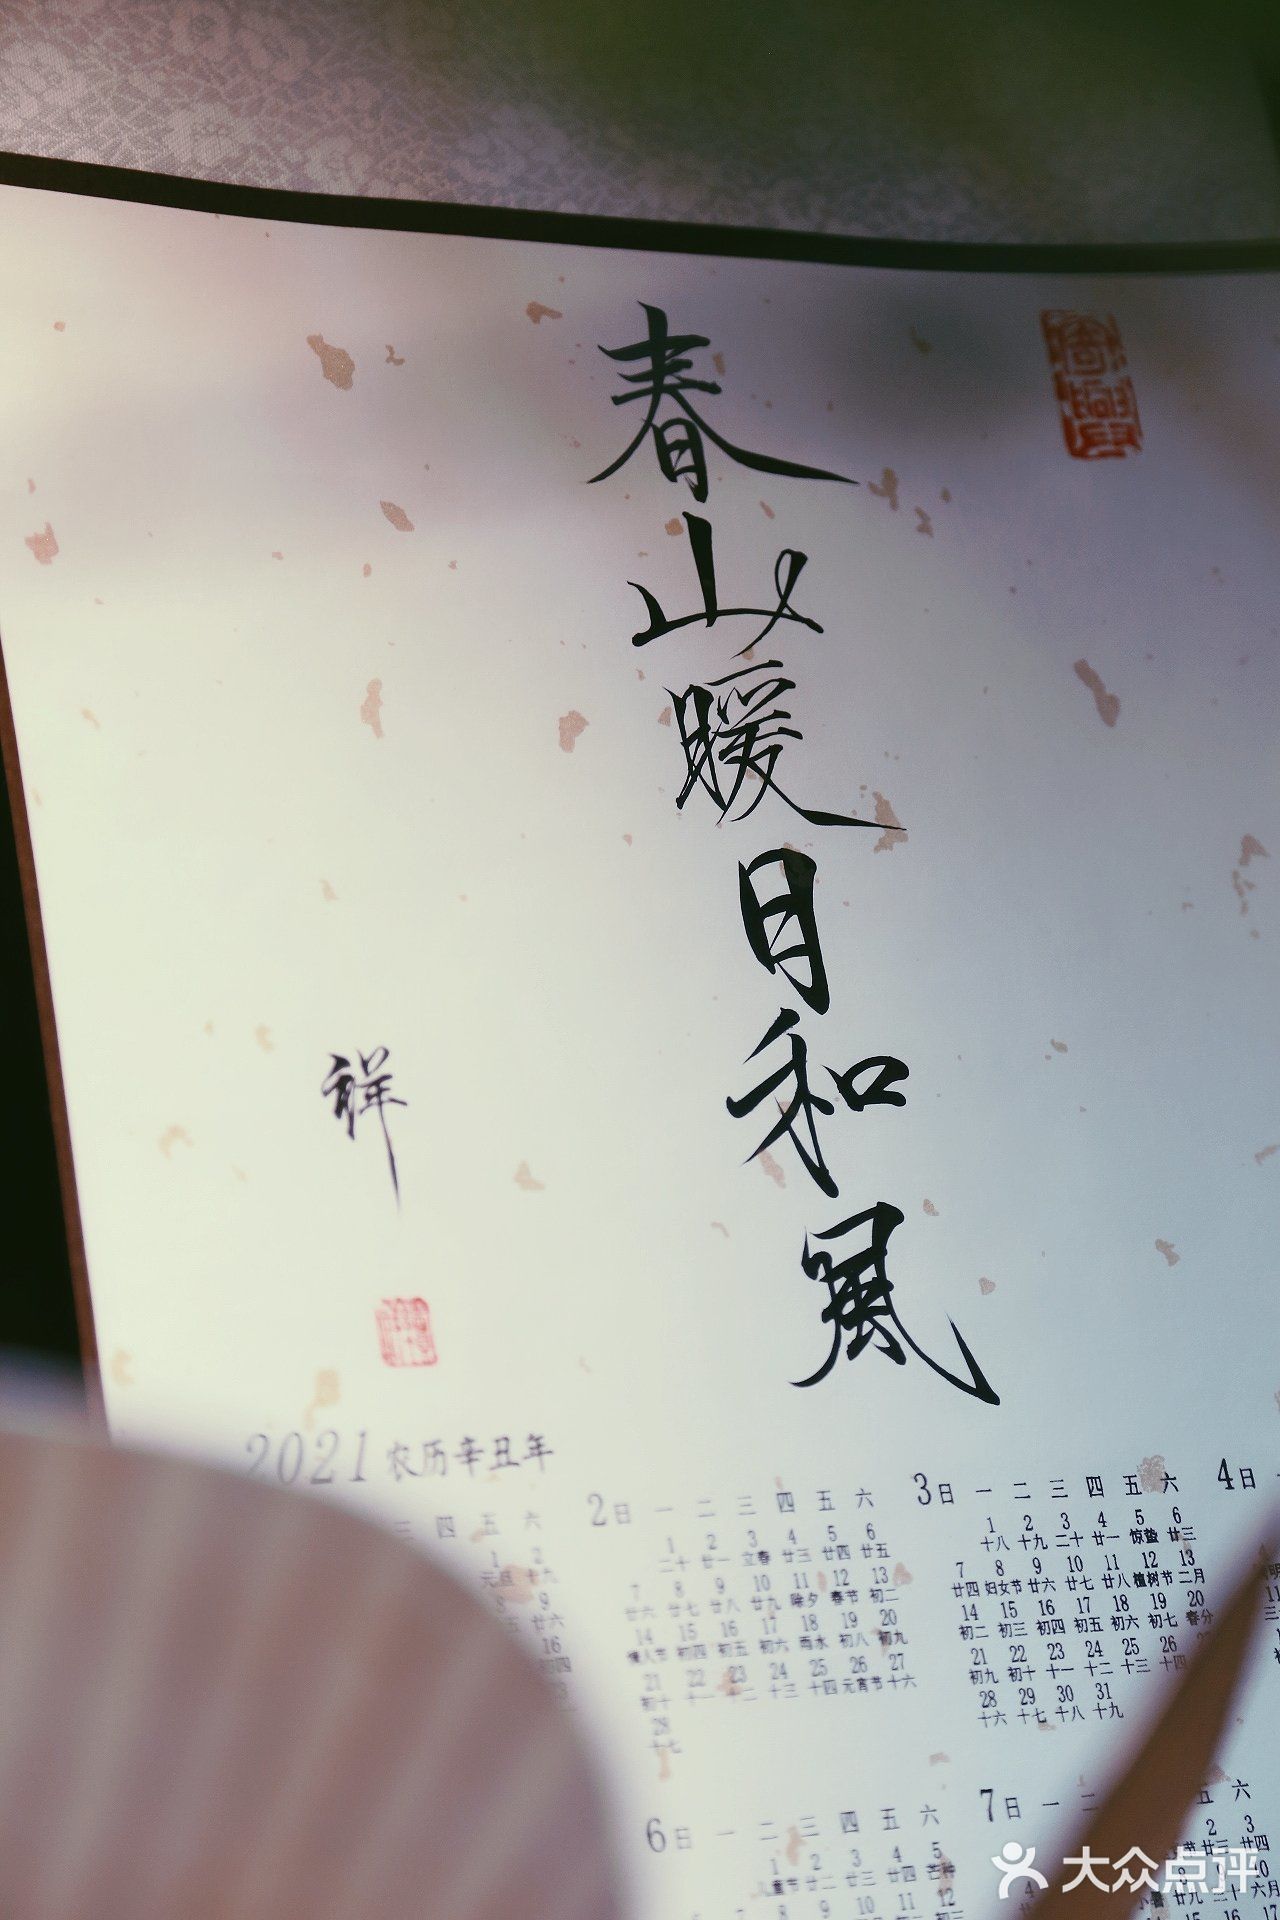 春山暖日和風
祥
2021 农历辛丑年
三 四 五 六
1 2
元旦 十九
9
廿六
16
2 日 一 二 三 四 五 六
1 2 3 4 5 6
二十 廿一 立春 廿三 廿四 廿五
7 8 9 10 11 12 13
廿六 廿七 廿八 廿九 除夕 春节 初二
14 15 16 17 18 19 20
情人节 初四 初五 初六 雨水 初八 初九
21 22 23 24 25 26 27
初十 十一 十二 十三 十四 元宵节 十六
28
十七
3 日 一 二 三 四 五 六
1 2 3 4 5 6
十八 十九 二十 廿一 惊蛰 廿三
7 8 9 10 11 12 13
廿四 妇女节 廿六 廿七 廿八 植树节 二月
14 15 16 17 18 19 20
初二 初三 初四 初五 初六 初七 春分
21 22 23 24 25 26
初九 初十 十一 十二 十三 十四
28 29 30 31
十六 十七 十八 十九
4 日
6 日 一 二 三 四 五 六
1 2 3 4 5
儿童节 廿二 廿三 廿四 芒种
8 9 10 11 12
7 日 一 二 五 六
2 3
廿三 廿四
10
廿九 三十 六月
15 16 17
大众点评